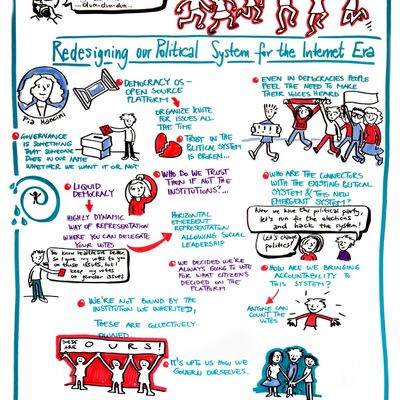 ...dum-dum-dum...
Redesigning our Political System for the Internet Era
Pia Mancini
GOVERNANCE
IS SOMETHING
THAT SOMEONE
DOES IN OUR NAME
WHETHER WE WANT IT OR NOT
DEMOCRACY OS -
OPEN SOURCE
PLATFORM
ORGANIZE VOTE
FOR ISSUES ALL
THE TIME
TRUST IN
THE POLITICAL SYSTEM
IS BROKEN...
EVEN IN DEMOCRACIES PEOPLE
FEEL THE NEED TO MAKE
THEIR VOICES HEARD
LIQUID
DEMOCRACY
HIGHLY DYNAMIC
WAY OF REPRESENTATION
WHERE YOU CAN DELEGATE
YOUR VOTES
You know
so I give my votes to you
on those issues, but I
keep my votes
on gender issues
WHO DO WE TRUST
THEN IF NOT THE
INSTITUTIONS?...
HORIZONTAL
EMERGENT
REPRESENTATION
ALLOWING SOCIAL
LEADERSHIP
WE DECIDED WE'RE
ALWAYS GOING TO VOTE
FOR WHAT CITIZEN'S
DECIDED ON THE
PLATFORM
WHO ARE THE CONNECTORS
WITH THE EXISTING POLITICAL
SYSTEM & THIS NEW
EMERGENT SYSTEM?
Now we have the political party,
let's run for the elections
and hack the system!
Let's change
politics!
HOW ARE WE BRINGING
ACCOUNTABILITY TO
THIS SYSTEM?
ANYONE CAN
COUNT THE
VOTES
WE'RE NOT BOUND BY THE
INSTITUTION WE INHERITED,
THESE ARE COLLECTIVELY
OWNED
THESE ARE OURS!
IT'S UP TO US HOW WE
GOVERN OURSELVES.